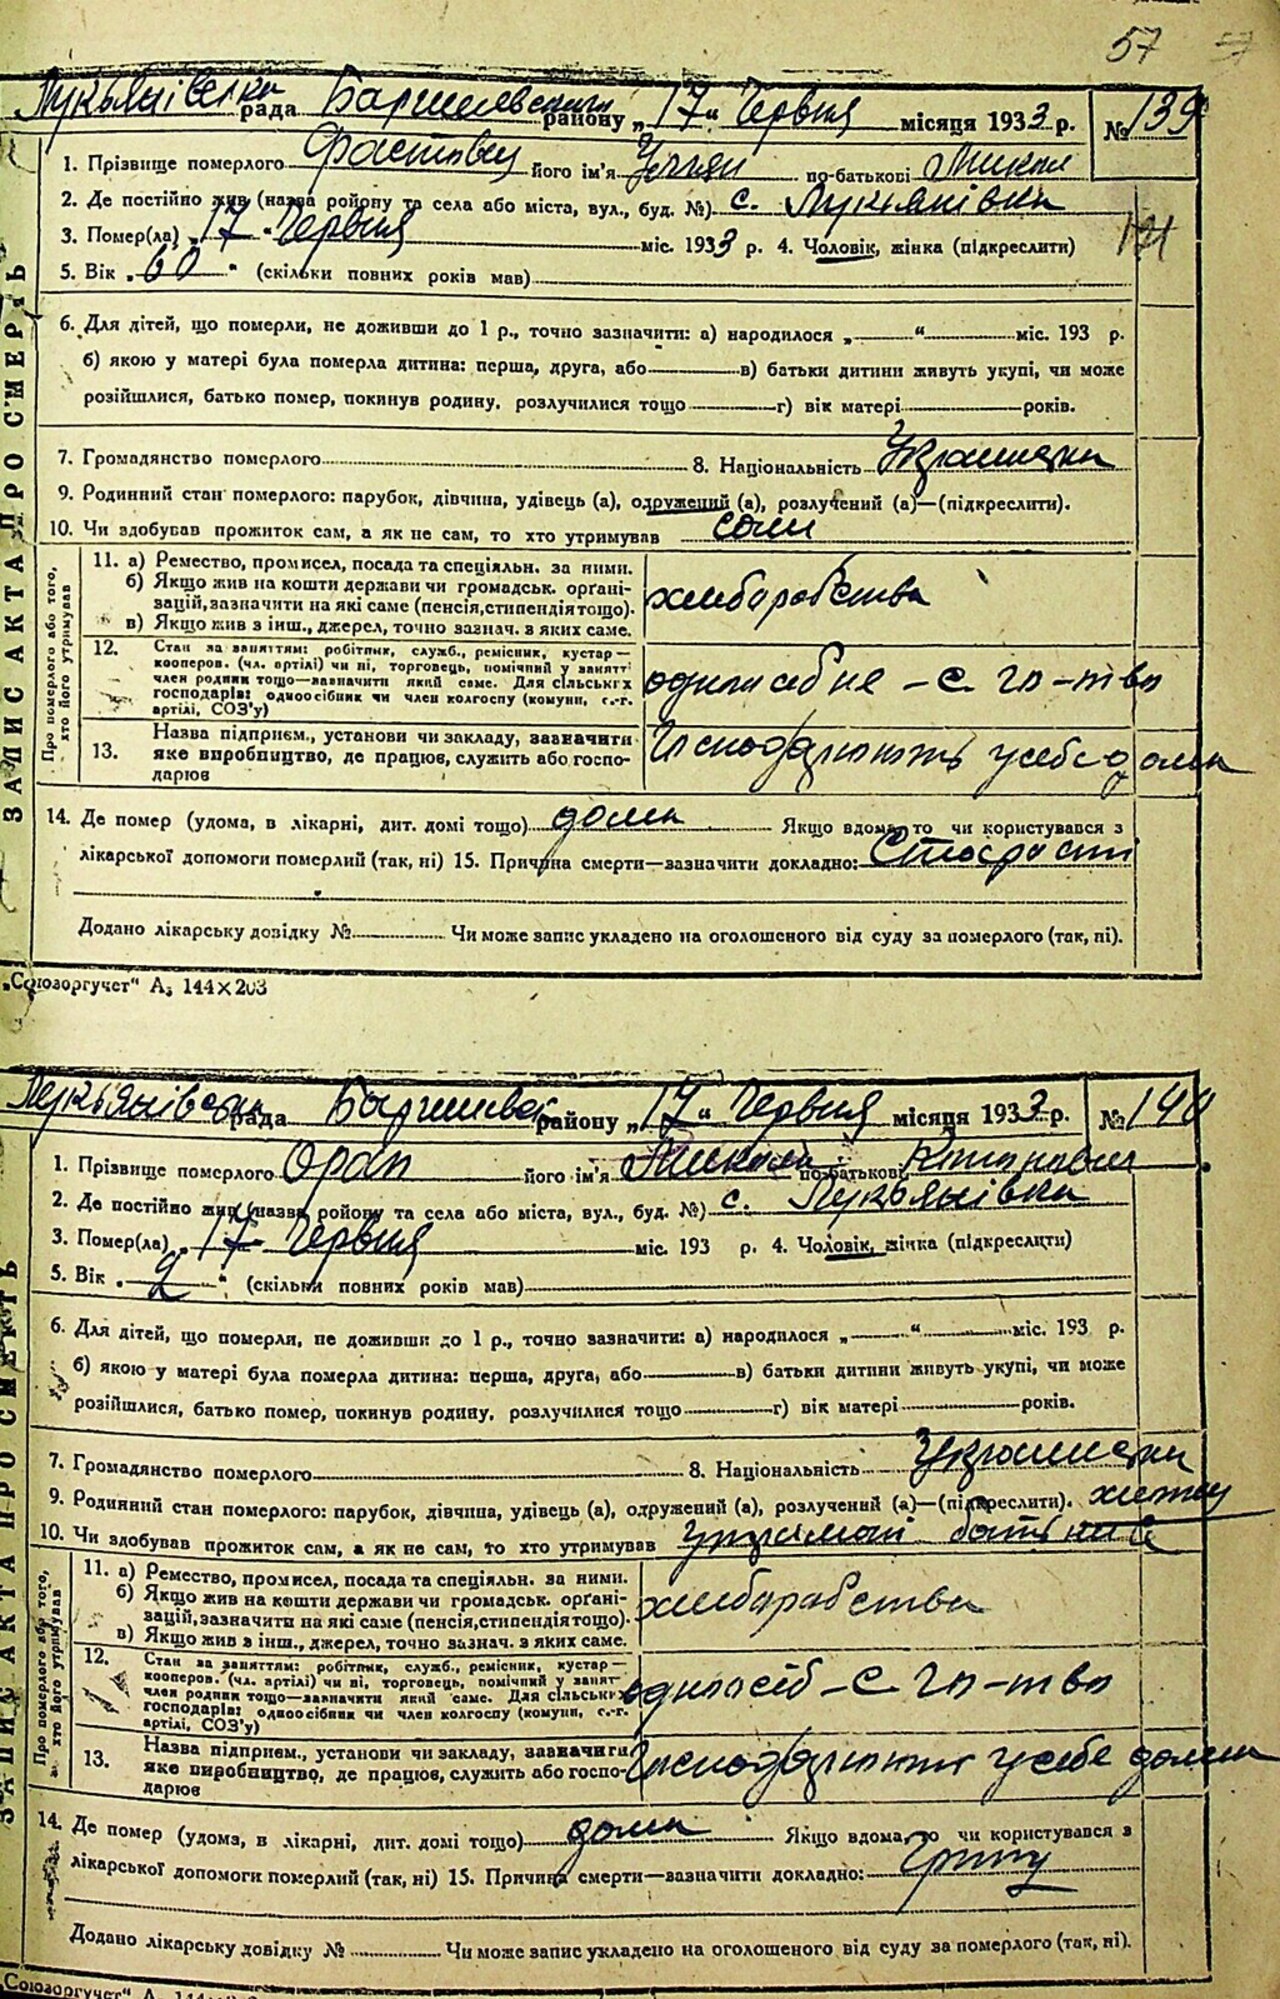 57
Лукьянівська рада Баришевського району „17" Червня місяця 1933 р. № 139
1. Прізвище померлого Фастовец його ім'я по-батькові Микол
2. Де постійно жив (назва району та села або міста, вул., буд. №) с. Лукьянівка
3. Помер(ла) „17 Червня міс. 1933 р. 4. Чоловік, жінка (підкреслити)
5. Вік „60" (скільки повних років мав)
6. Для дітей, що померли, не доживши до 1 р., точно зазначити: а) народилося „ " міс. 193 р.
б) якою у матері була померла дитина: перша, друга, або в) батьки дитини живуть укупі, чи може
розійшлися, батько помер, покинув родину, розлучилися тощо г) вік матері років.
7. Громадянство померлого 8. Національність Украінець
9. Родинний стан померлого: парубок, дівчина, удівець (а), одружений (а), розлучений (а)—(підкреслити).
10. Чи здобував прожиток сам, а як не сам, то хто утримував сам
ЗАПИС АКТА ПРО СМЕРТЬ
Про померлого або того, хто його утримував
11. а) Ремество, промисел, посада та спеціяльн. за ними.
б) Якщо жив на кошти держави чи громадськ. органі-
зацій, зазначити на які саме (пенсія, стипендія тощо).
в) Якщо жив з інш., джерел, точно зазнач. з яких саме.
хлиборобства
12. Стан за заняттям: робітник, служб., ремісник, кустар—
кооперов. (чл. артілі) чи ні, торговець, помічний у занятт
член родини тощо—зазначити який саме. Для сільських
господарів: одноосібник чи член колгоспу (комуни, с.-г.
артілі, СОЗ'у)
с го-тво
13. Назва підприєм., установи чи закладу, зазначити
яке виробництво, де працює, служить або госпо-
дарює
у себе дома
14. Де помер (удома, в лікарні, дит. домі тощо) дома Якщо вдома, то чи користувався з
лікарської допомоги померлий (так, ні) 15. Причина смерти—зазначити докладно: Старости
Додано лікарську довідку № Чи може запис укладено на оголошеного від суду за померлого (так, ні).
„Союзоргучет" А₅ 144×203
Лукьянівська рада Баришевск району „17" Червня місяця 1933 р. № 140
1. Прізвище померлого Орап його ім'я Микола по-батькові
2. Де постійно жив (назва району та села або міста, вул., буд. №) с. Лукьянівка
3. Помер(ла) „17 Червня міс. 193 р. 4. Чоловік, жінка (підкреслити)
5. Вік „2" (скільки повних років мав)
6. Для дітей, що померли, не доживши до 1 р., точно зазначити: а) народилося „ " міс. 193 р.
б) якою у матері була померла дитина: перша, друга, або в) батьки дитини живуть укупі, чи може
розійшлися, батько помер, покинув родину, розлучилися тощо г) вік матері років.
7. Громадянство померлого 8. Національність Украінець
9. Родинний стан померлого: парубок, дівчина, удівець (а), одружений (а), розлучений (а)—(підкреслити).
10. Чи здобував прожиток сам, а як не сам, то хто утримував
ЗАПИС АКТА ПРО СМЕРТЬ
Про померлого або того, хто його утримував
11. а) Ремество, промисел, посада та спеціяльн. за ними.
б) Якщо жив на кошти держави чи громадськ. органі-
зацій, зазначити на які саме (пенсія, стипендія тощо).
в) Якщо жив з інш., джерел, точно зазнач. з яких саме.
хлиборобства
12. Стан за заняттям: робітник, служб., ремісник, кустар—
кооперов. (чл. артілі) чи ні, торговець, помічний у занят
член родини тощо—зазначити який саме. Для сільських
господарів: одноосібник чи член колгоспу (комуни, с.-г.
артілі, СОЗ'у)
одноосіб - с го-тво
13. Назва підприєм., установи чи закладу, зазначити
яке виробництво, де працює, служить або госпо-
дарює
у себе дома
14. Де помер (удома, в лікарні, дит. домі тощо) дома Якщо вдома, то чи користувався з
лікарської допомоги померлий (так, ні) 15. Причина смерти—зазначити докладно:
Додано лікарську довідку № Чи може запис укладено на оголошеного від суду за померлого (так, ні).
„Союзоргучет"